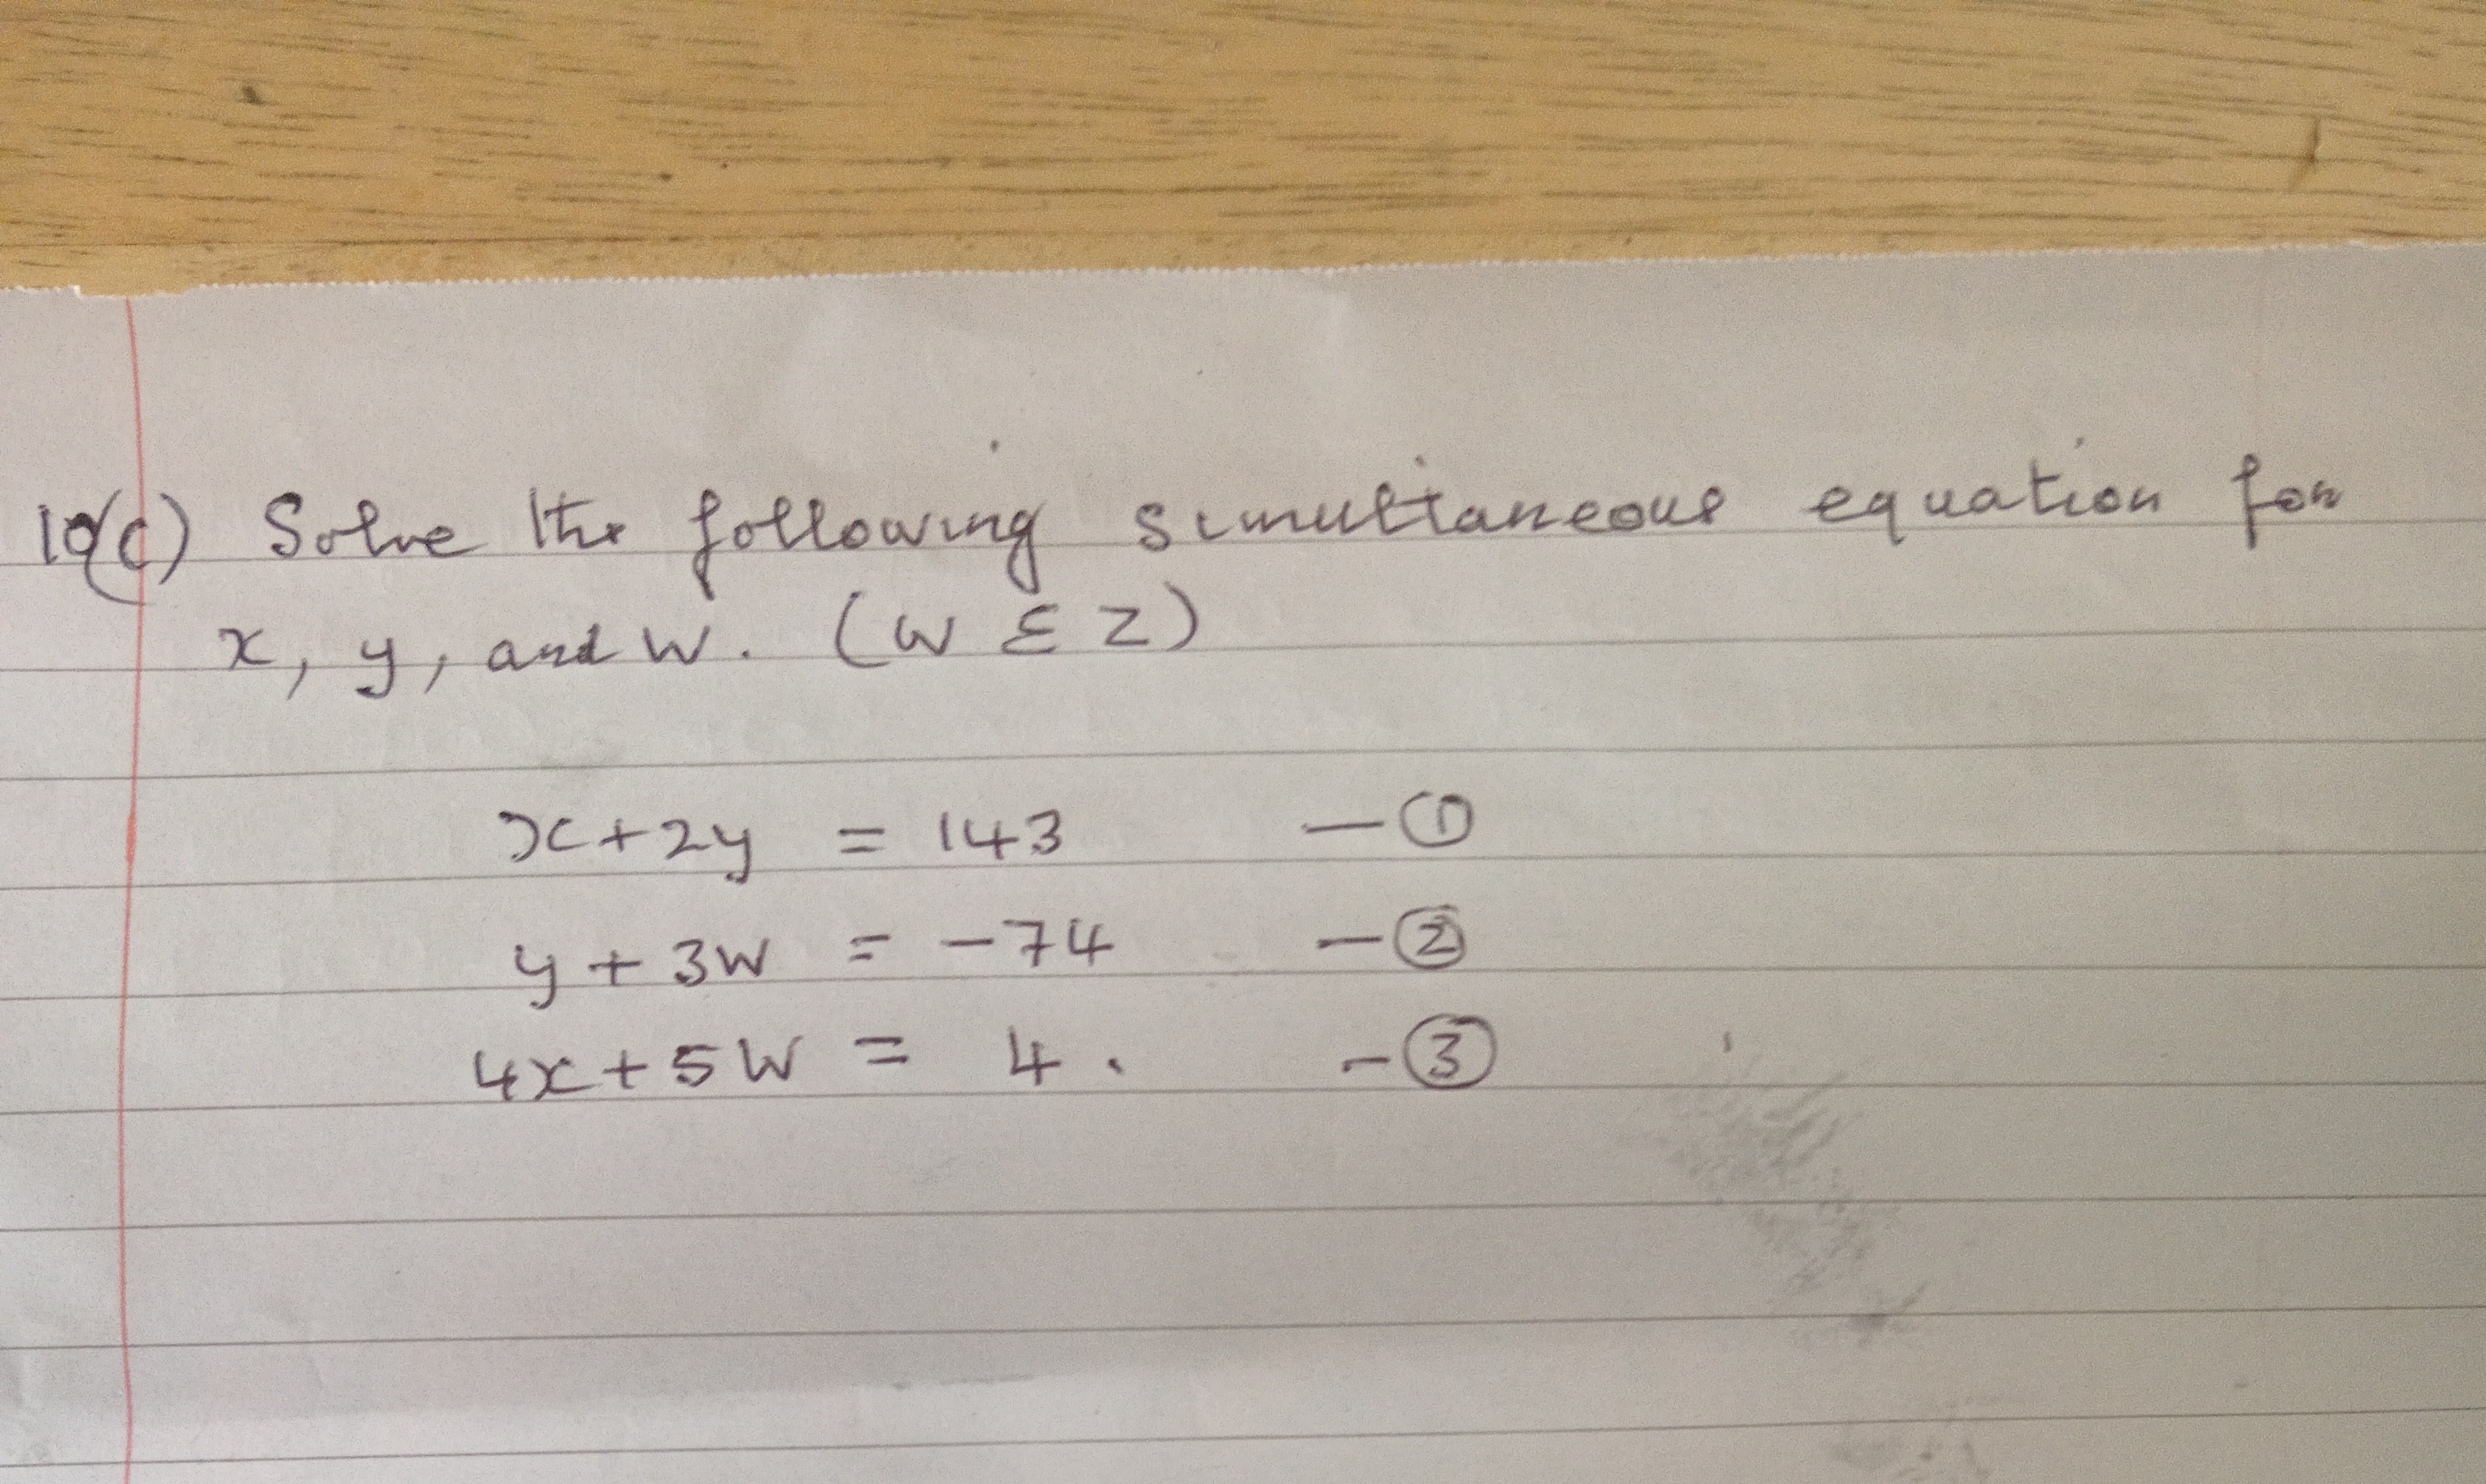 10(c) Solve the following simultaneous equation for
x, y, and w. (w ε z)
x+2y = 143 —①
y + 3w = -74 —②
4x+5w = 4. -③